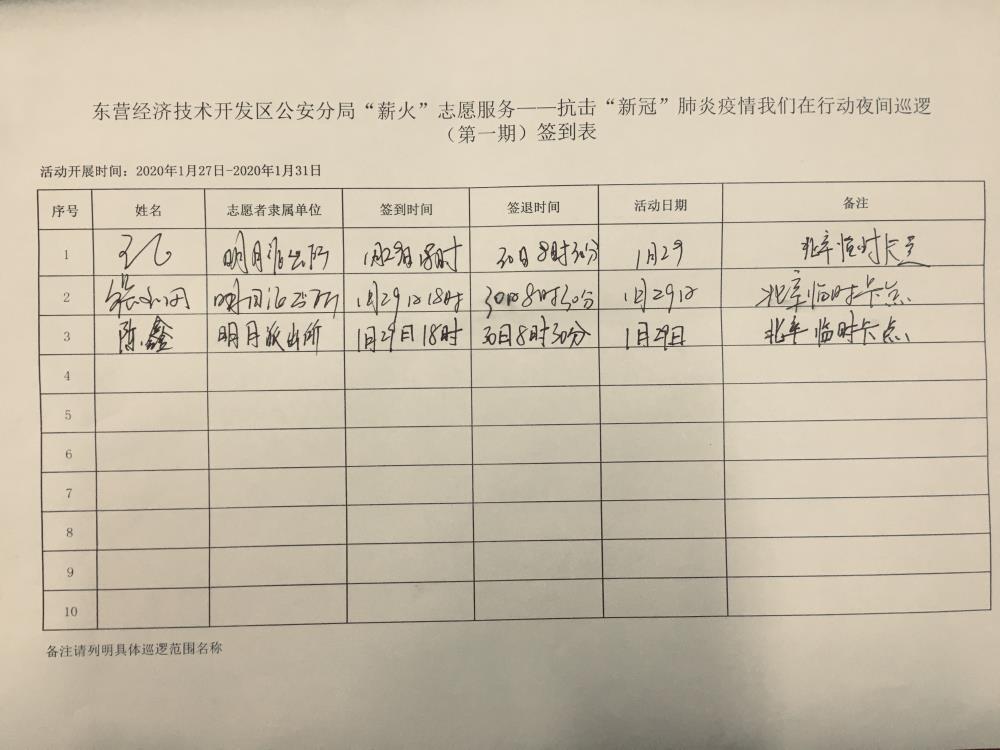 东营经济技术开发区公安分局“薪火”志愿服务——抗击“新冠”肺炎疫情我们在行动夜间巡逻
（第一期）签到表
活动开展时间：2020年1月27日-2020年1月31日
序号 姓名 志愿者隶属单位 签到时间 签退时间 活动日期 备注
1 明月派出所 1月29日18时 30日8时30分 1月29 临时卡点
2 明月派出所 1月29日18时 30日8时30分 1月29日 临时卡点
3 陈鑫 明月派出所 1月29日18时 30日8时30分 1月29日 临时卡点
4
5
6
7
8
9
10
备注请列明具体巡逻范围名称